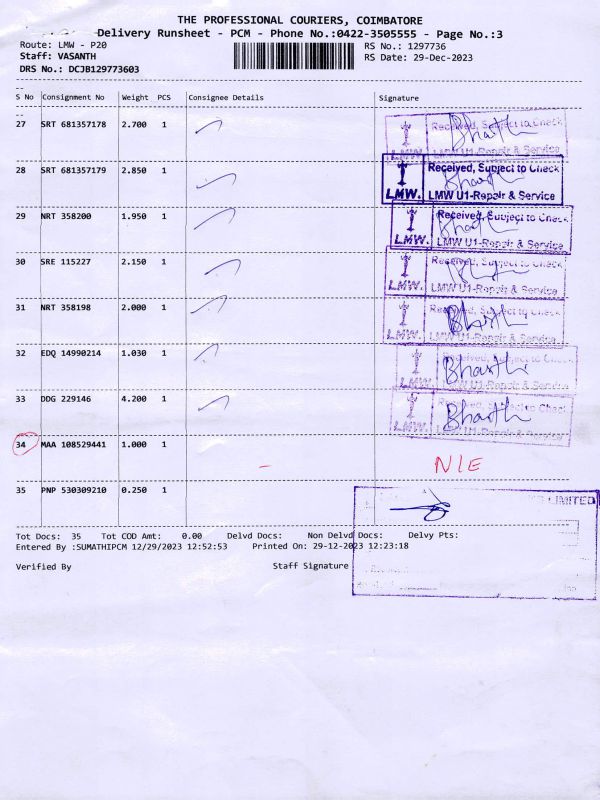 THE PROFESSIONAL COURIERS, COIMBATORE
Delivery Runsheet - PCM - Phone No.:0422-3505555 - Page No.:3
Route: LMW - P20
RS No.: 1297736
Staff: VASANTH
RS Date: 29-Dec-2023
DRS No.: DCJB129773603
S No Consignment No Weight PCS Consignee Details Signature
27 SRT 681357178 2.700 1
Received, Subject to Check
LMW. LMW U1-Repair & Service
28 SRT 681357179 2.850 1
Received, Subject to Check
LMW. LMW U1-Repair & Service
29 NRT 358200 1.950 1
Received, Subject to Check
LMW. LMW U1-Repair & Service
30 SRE 115227 2.150 1
Received, Subject to Check
LMW. LMW U1-Repair & Service
31 NRT 358198 2.000 1
Received, Subject to Check
LMW. LMW U1-Repair & Service
32 EDQ 14990214 1.030 1
Received, Subject to Check
LMW. LMW U1-Repair & Service
33 DDG 229146 4.200 1
Received, Subject to Check
LMW. LMW U1-Repair & Service
34 MAA 108529441 1.000 1 NIE
35 PNP 530309210 0.250 1
LIMITED
Tot Docs: 35 Tot COD Amt: 0.00 Delvd Docs: Non Delvd Docs: Delvy Pts:
Entered By :SUMATHIPCM 12/29/2023 12:52:53 Printed On: 29-12-2023 12:23:18
Verified By Staff Signature